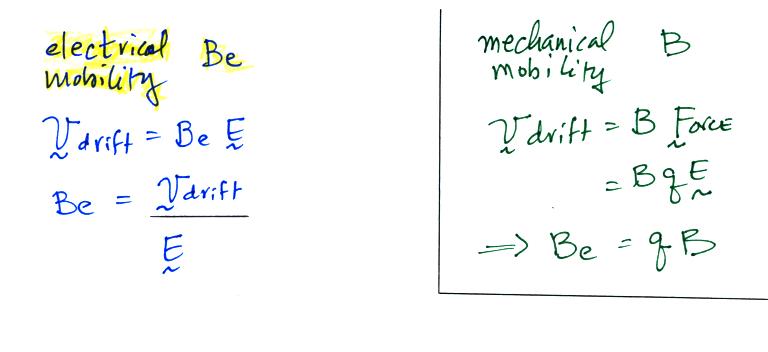 electrical Be
mobility
V drift = Be E
Be = V drift
E
mechanical B
mobility
V drift = B Force
= B q E
⟹ Be = q B